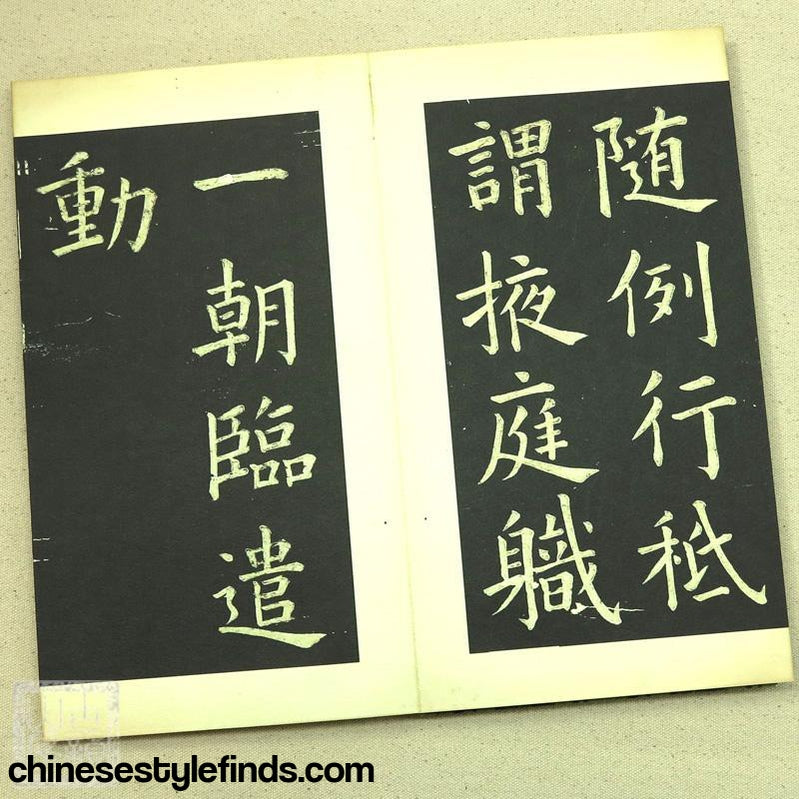 随例行秪
謂掖庭軄
一朝臨遣
動
chinesestylefinds.com